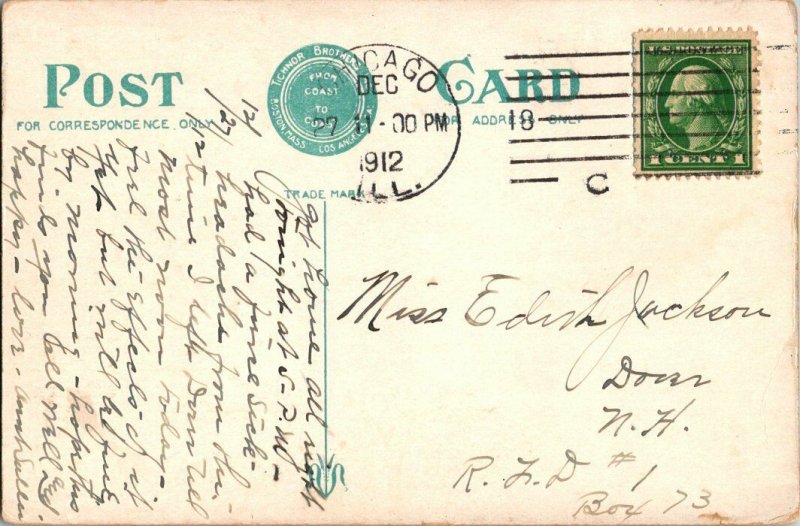 POST CARD
FOR CORRESPONDENCE ONLY
FOR ADDRESS ONLY
TICHNOR BROTHERS
BOSTON, MASS. LOS ANGELES
FROM
COAST
TO
TRADE MARK
CHICAGO
DEC
27 11-00 PM
1912
ILL.
18
C
U.S. POSTAGE
1 CENT 1
12/27/12
got home all right
tonight at 5 P.M. -
had a fierce sick-
headache from the
time I left Dover till
most noon today -
feel the effects of it
yet but will be fine
by morning - hope this
finds you all well &
happy - love - Aunt
Miss Edith Jackson
Dover
N.H.
R.F.D #1
Box 73